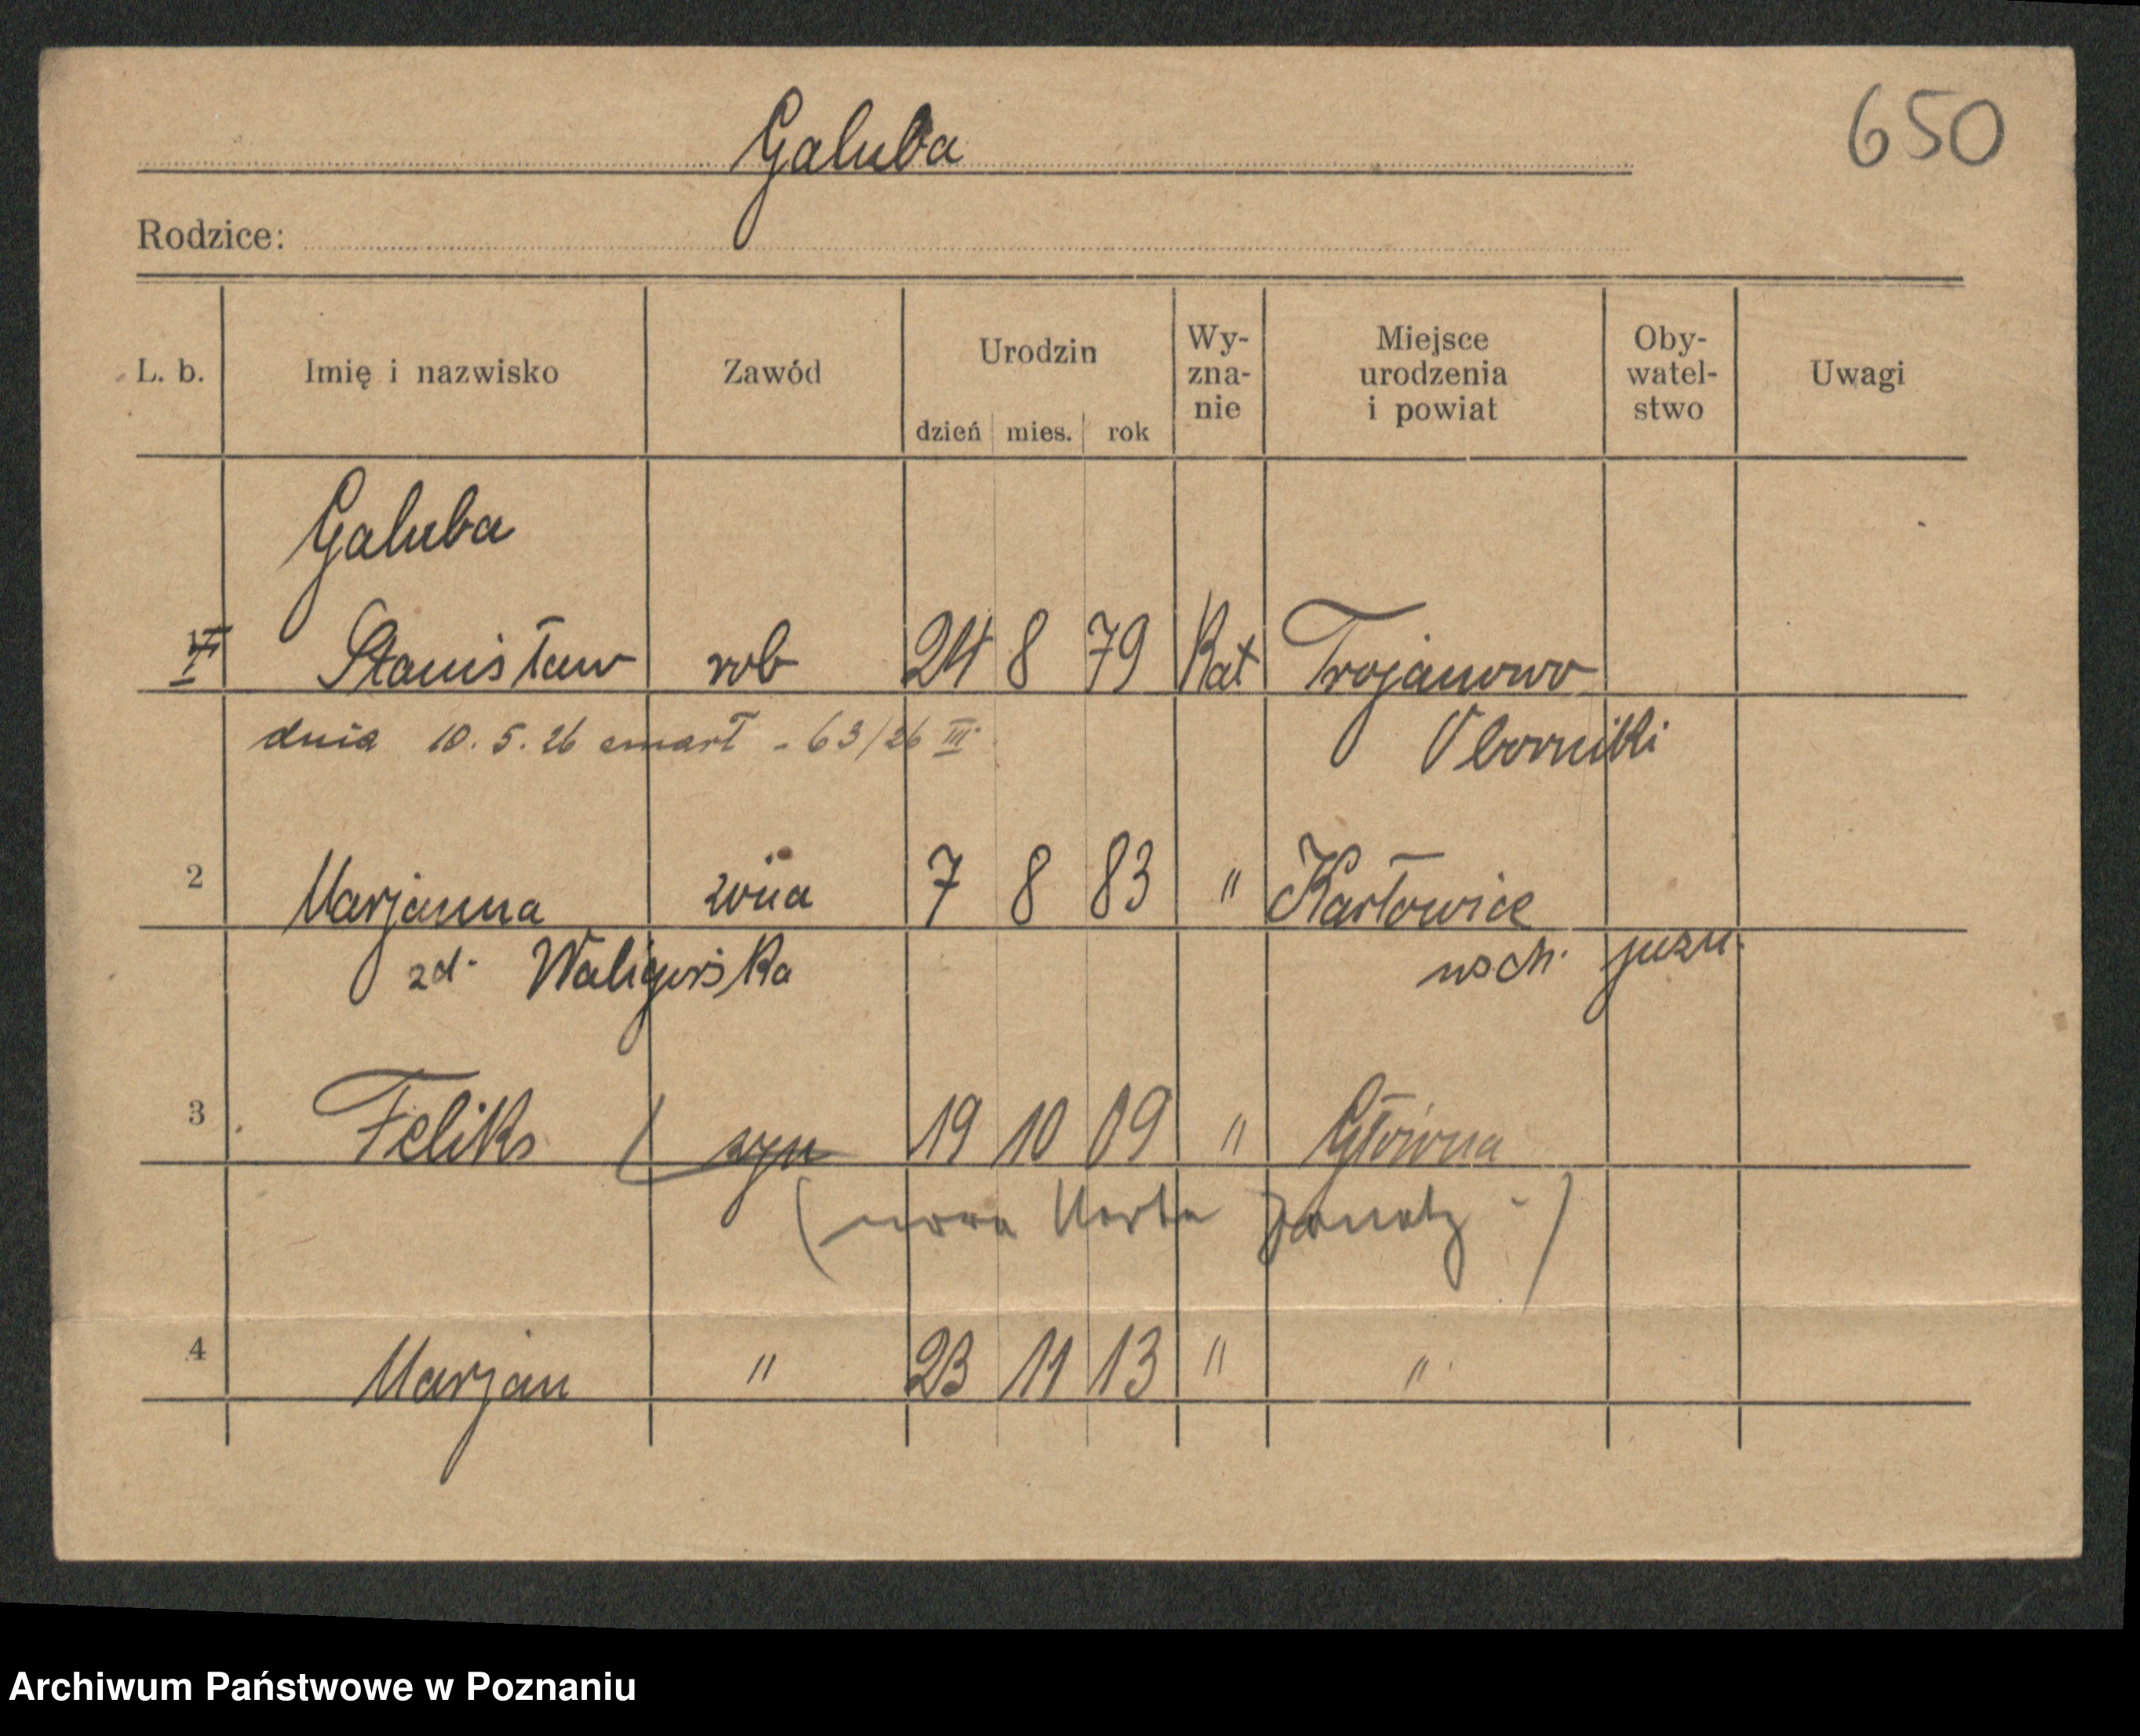 Galuba
650
Rodzice:
L. b. Imię i nazwisko Zawód Urodzin dzień mies. rok Wy-zna-nie Miejsce urodzenia i powiat Oby-watel-stwo Uwagi
Galuba
Stanisław rob 24 8 79 Kat Trojanowo
dnia 10. 5. 26 zmarł - 63/26 III. Obornikki
2 Marjanna żona 7 8 83 " Karłowice
zd. Waligórska wsch. pozn.
3 Feliks syn 19 10 09 " Główna
(nowa Karta)
4 Marjan " 23 11 13 " "
Archiwum Państwowe w Poznaniu